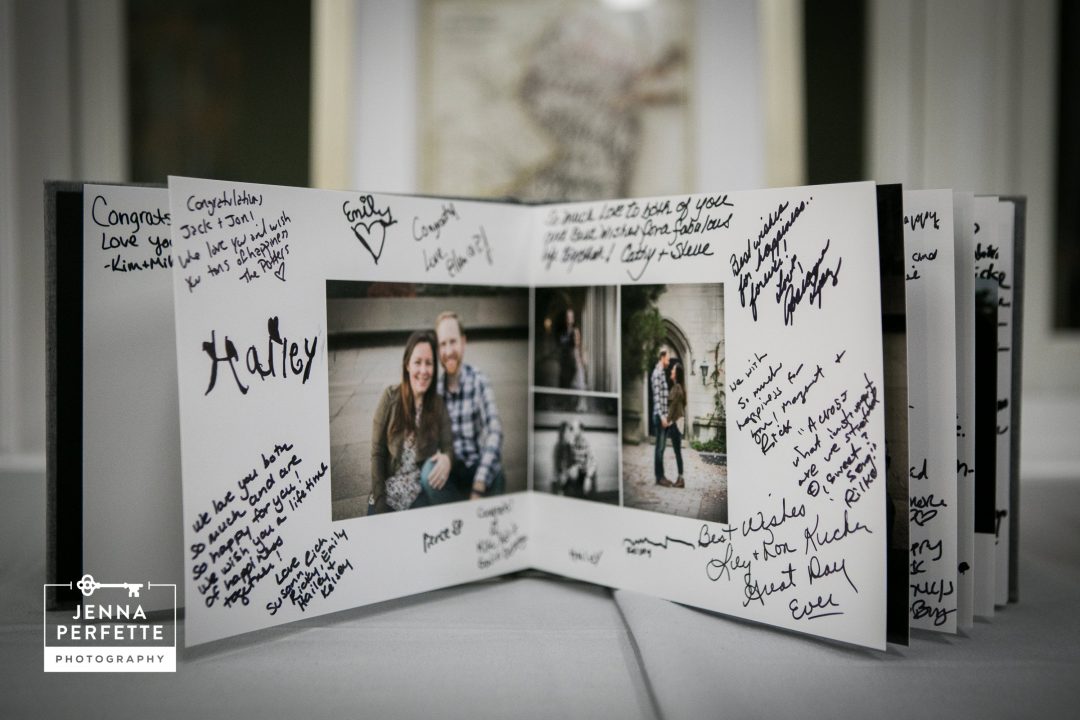 Congrats
Love you
-Kim+Mik
Congratulations
Jack + Joni!
We love you and wish
you tons of happiness
The Potters
Emily
Congrats
Love
Hailey
We love you both
so much and are
so happy for you!
We wish you a lifetime
of happiness
together!
Love
Emily
Hailey +
Kailey
Pierce
Congrats!
So much love to both of you
and best wishes for a fabulous
Cathy + Steve
Best wishes
for happiness
forever!
Love,
We wish
so much
happiness for
you! Margaret +
Rick
"Across
what instrument
are we stretched
O, sweet
song"
Rilke
Hailey
Kailey
Best Wishes
+ Don Kucher
Great Day
Ever
appy
and
JENNA
PERFETTE
PHOTOGRAPHY